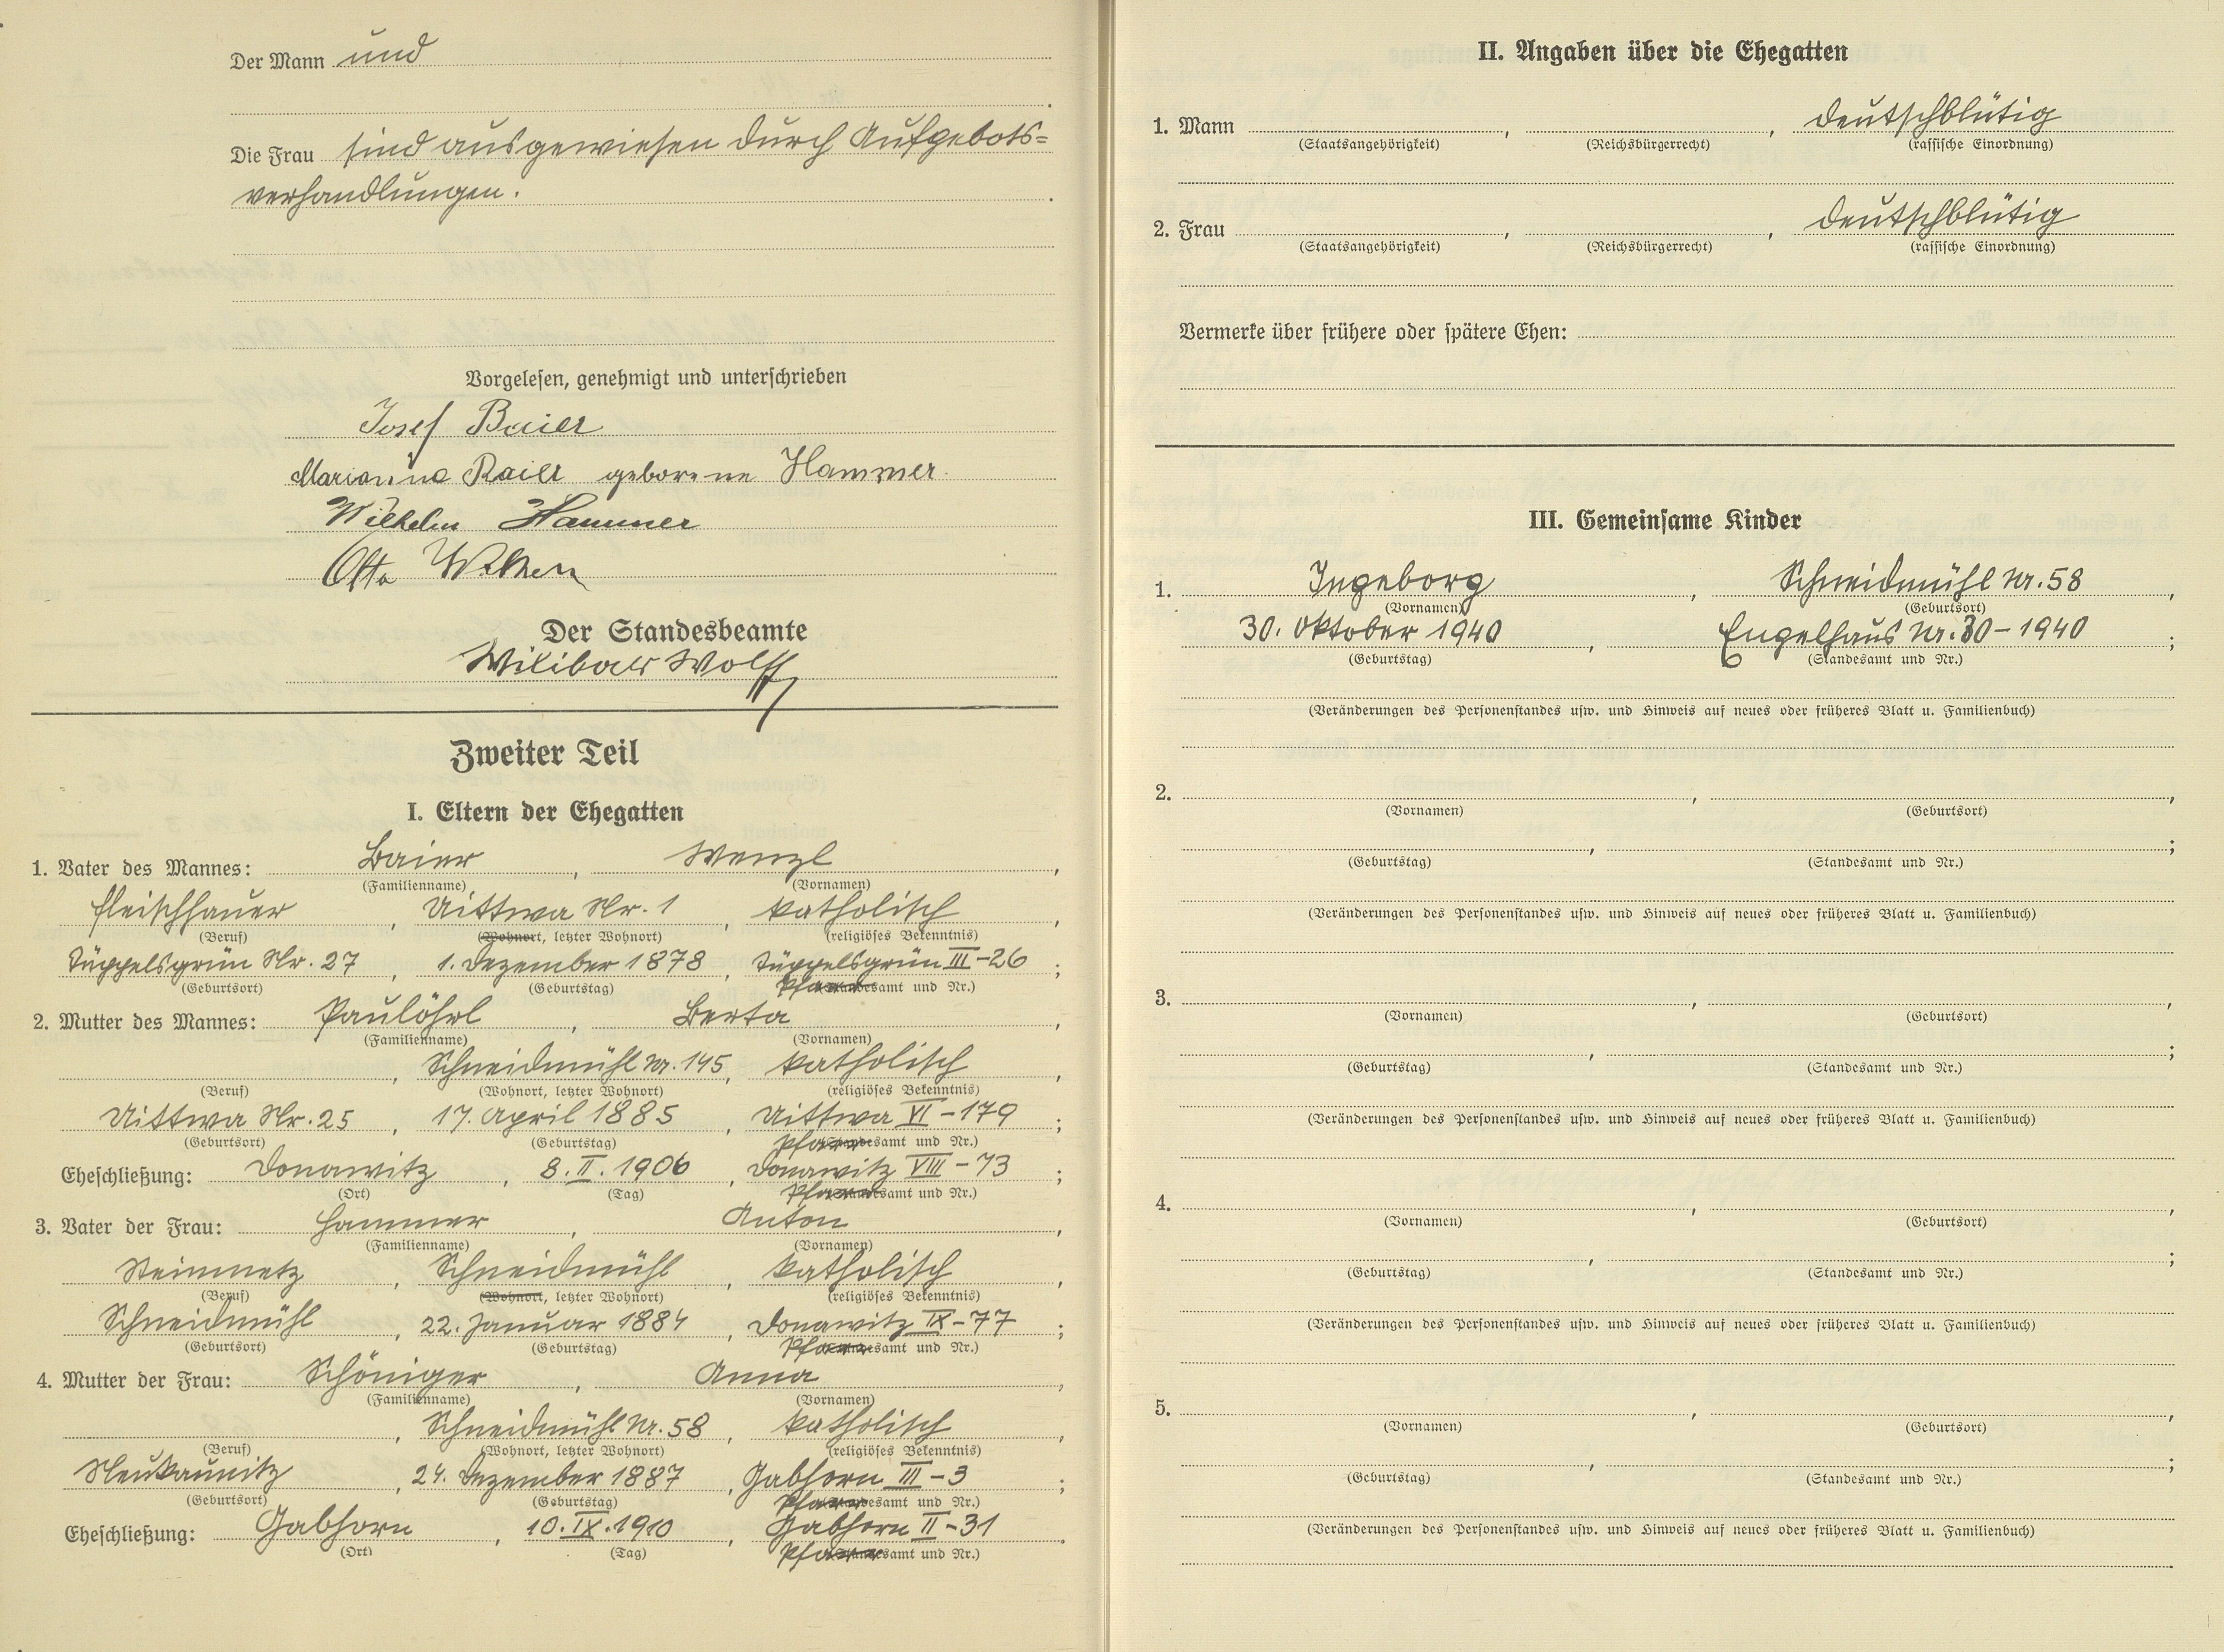 Der Mann und
Die Frau sind ausgewiesen durch Aufgebots=
verhandlungen.
Vorgelesen, genehmigt und unterschrieben
Josef Baier
Marianna Baier geborene Hammer
Wilhelm Hammer
Otto
Der Standesbeamte
Wilibald Wolf
Zweiter Teil
I. Eltern der Ehegatten
1. Vater des Mannes: Baier, Wenzl,
(Familienname) (Vornamen)
Fleischhauer, Uittwa Nr. 1, katholisch,
(Beruf) (Wohnort, letzter Wohnort) (religiöses Bekenntnis)
Tüppelsgrün Nr. 27, 1. Dezember 1878, Tüppelsgrün III-26;
(Geburtsort) (Geburtstag) Pfarramt und Nr.)
2. Mutter des Mannes: Paulöhrl, Berta,
(Familienname) (Vornamen)
, Schneidmühl Nr. 145, katholisch,
(Beruf) (Wohnort, letzter Wohnort) (religiöses Bekenntnis)
Uittwa Nr. 25, 17. April 1885, Uittwa VI-179;
(Geburtsort) (Geburtstag) Pfarramt und Nr.)
Eheschließung: Donawitz, 8. II. 1906, Donawitz VIII-73;
(Ort) (Tag) Pfarramt und Nr.)
3. Vater der Frau: Hammer, Anton,
(Familienname) (Vornamen)
Steinmetz, Schneidmühl, katholisch,
(Beruf) (Wohnort, letzter Wohnort) (religiöses Bekenntnis)
Schneidmühl, 22. Januar 1884, Donawitz IX-77;
(Geburtsort) (Geburtstag) Pfarramt und Nr.)
4. Mutter der Frau: Schöniger, Anna,
(Familienname) (Vornamen)
, Schneidmühl Nr. 58, katholisch,
(Beruf) (Wohnort, letzter Wohnort) (religiöses Bekenntnis)
Neukaunitz, 24. Dezember 1887, Gabhorn III-3;
(Geburtsort) (Geburtstag) Pfarramt und Nr.)
Eheschließung: Gabhorn, 10. IX. 1910, Gabhorn II-31.
(Ort) (Tag) Pfarramt und Nr.)
II. Angaben über die Ehegatten
1. Mann , , deutschblütig
(Staatsangehörigkeit) (Reichsbürgerrecht) (rassische Einordnung)
2. Frau , , deutschblütig
(Staatsangehörigkeit) (Reichsbürgerrecht) (rassische Einordnung)
Vermerke über frühere oder spätere Ehen:
III. Gemeinsame Kinder
1. Ingeborg, Schneidmühl Nr. 58,
(Vornamen) (Geburtsort)
30. Oktober 1940, Engelhaus Nr. 30-1940;
(Geburtstag) (Standesamt und Nr.)
(Veränderungen des Personenstandes usw. und Hinweis auf neues oder früheres Blatt u. Familienbuch)
2. , ,
(Vornamen) (Geburtsort)
, ;
(Geburtstag) (Standesamt und Nr.)
(Veränderungen des Personenstandes usw. und Hinweis auf neues oder früheres Blatt u. Familienbuch)
3. , ,
(Vornamen) (Geburtsort)
, ;
(Geburtstag) (Standesamt und Nr.)
(Veränderungen des Personenstandes usw. und Hinweis auf neues oder früheres Blatt u. Familienbuch)
4. , ,
(Vornamen) (Geburtsort)
, ;
(Geburtstag) (Standesamt und Nr.)
(Veränderungen des Personenstandes usw. und Hinweis auf neues oder früheres Blatt u. Familienbuch)
5. , ,
(Vornamen) (Geburtsort)
, ;
(Geburtstag) (Standesamt und Nr.)
(Veränderungen des Personenstandes usw. und Hinweis auf neues oder früheres Blatt u. Familienbuch)